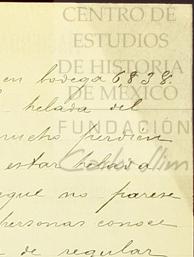 CENTRO DE
ESTUDIOS
DE HISTORIA
DE MÉXICO
FUNDACIÓN
en bodega 6838
helada del
mucho perdón
estar helada
que no parese
personas conoce
de regular